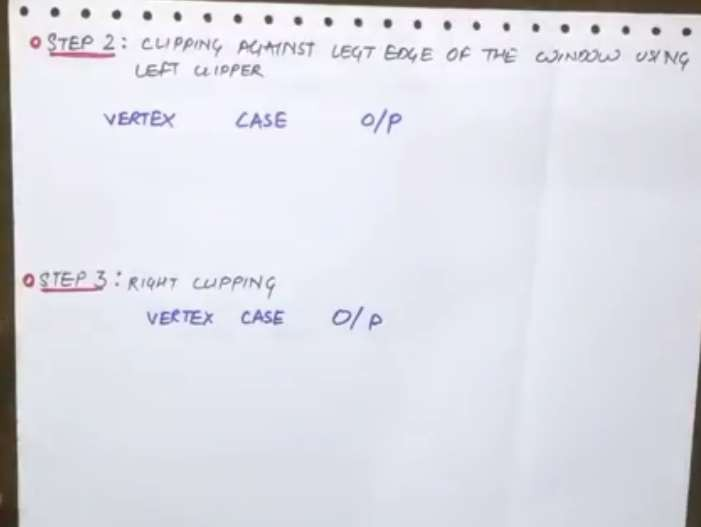 STEP 2: CLIPPING AGAINST LEGT EDGE OF THE WINDOW USING
LEFT CLIPPER
VERTEX CASE O/P
STEP 3: RIGHT CLIPPING
VERTEX CASE O/P